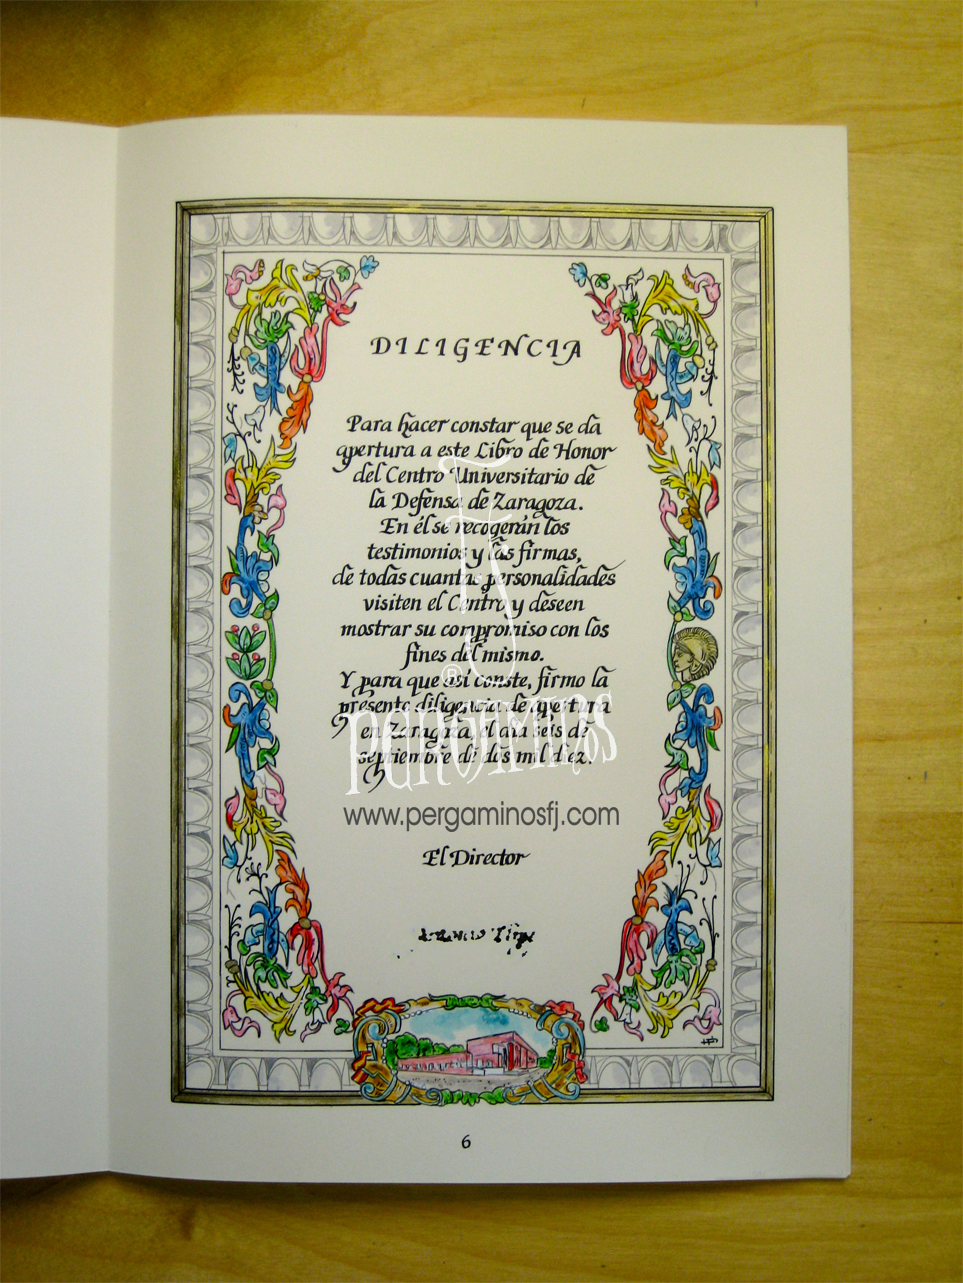 DILIGENCIA
Para hacer constar que se da
apertura a este Libro de Honor
del Centro Universitario de
la Defensa de Zaragoza.
En él se recogerán los
testimonios y las firmas,
de todas cuantas personalidades
visiten el Centro y deseen
mostrar su compromiso con los
fines del mismo.
Y para que así conste, firmo la
presente diligencia de apertura
en Zaragoza, el día seis de
septiembre de dos mil diez.
®
pergaminos
www.pergaminosfj.com
El Director
6